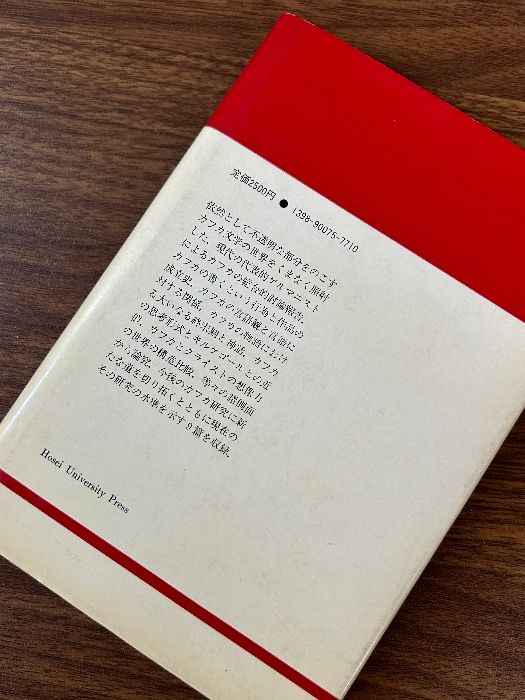 定価2500円 ● 1398-90075-7710
依然として不透明な部分をのこす
カフカ文学の世界をくまなく照射
した，現代の代表的ゲルマニスト
によるカフカの総合的討論報告．
カフカの書くという行為と作品の
成立史，カフカの言語観と言語に
対する関係，カフカの物語におけ
る大いなる終末観と神話，カフカ
の思考形式とキルケゴールとの近
似，カフカとクライストの想像力
の世界の構造比較，等々の諸側面
から論究，今後のカフカ研究に新
たな道を切り拓くとともに現在の
その研究の水準を示す9篇を収録．
Hosei University Press